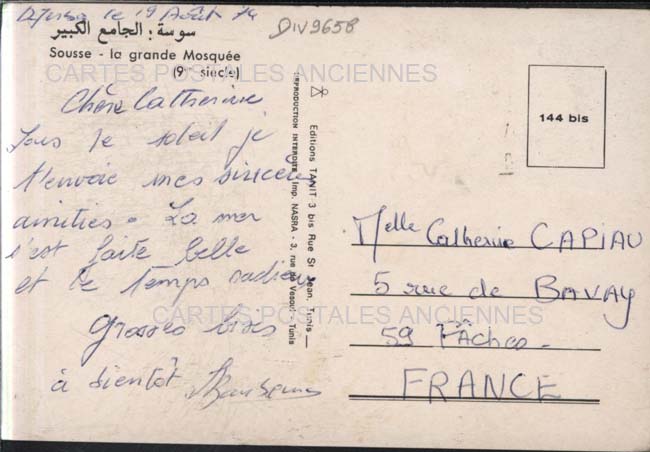 Djerba le 19 Août 74
DIV9658
سوسة : الجامع الكبير
Sousse - la grande Mosquée
(9e siècle)
CARTES POSTALES ANCIENNES
Chère Catherine
Sous le soleil je
t'envoie mes sincères
amitiés. La mer
s'est faite belle
et le temps radieux
Grosses bises
à bientôt
Editions TANIT 3 bis Rue St Jean. Tunis
REPRODUCTION INTERDITE Imp. NASRA - 3, rue de Vesoul - Tunis
144 bis
Melle Catherine CAPIAU
5 rue de BAVAY
CARTES POSTALES ANCIENNES
59 Fâches
FRANCE